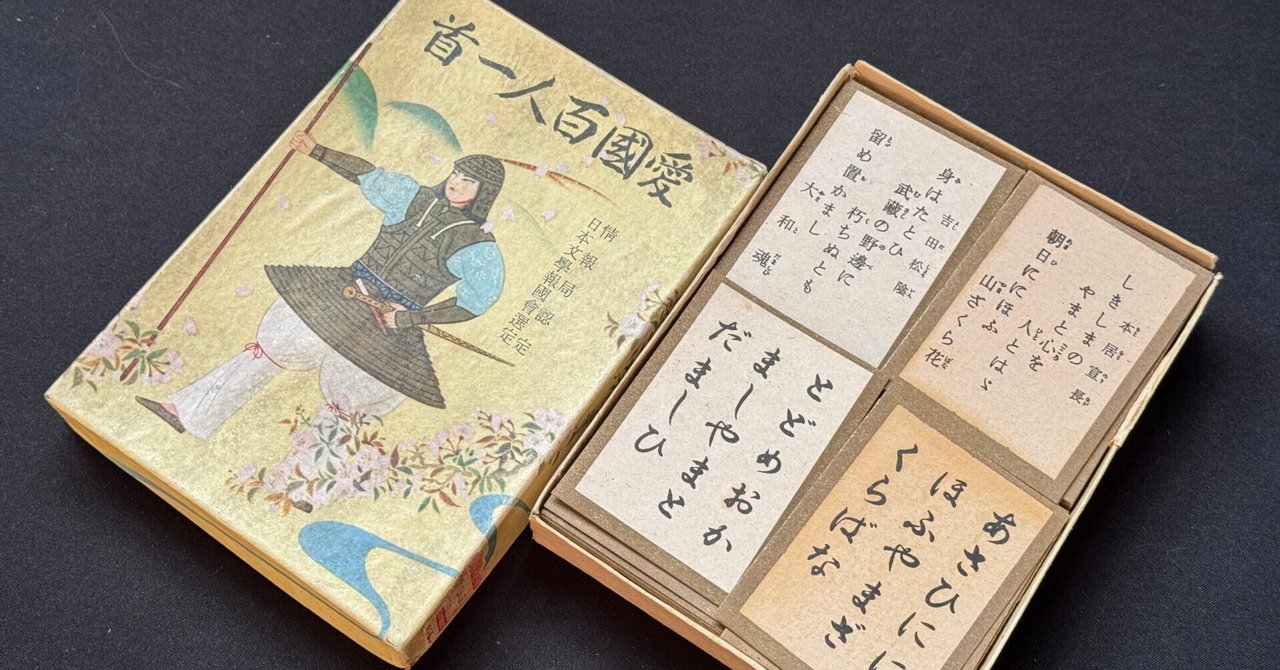 愛國百人一首
情報局認定
日本文學報國會選定
本居宣長
しきしまの
やまと心を
人とはゞ
朝日ににほふ
山ざくら花
吉田松陰
身はたとひ
武藏の野邊に
朽ちぬとも
留め置かまし
大和魂
あさひにに
ほふやまざ
くらばな
とどめおか
ましやまと
だましひ